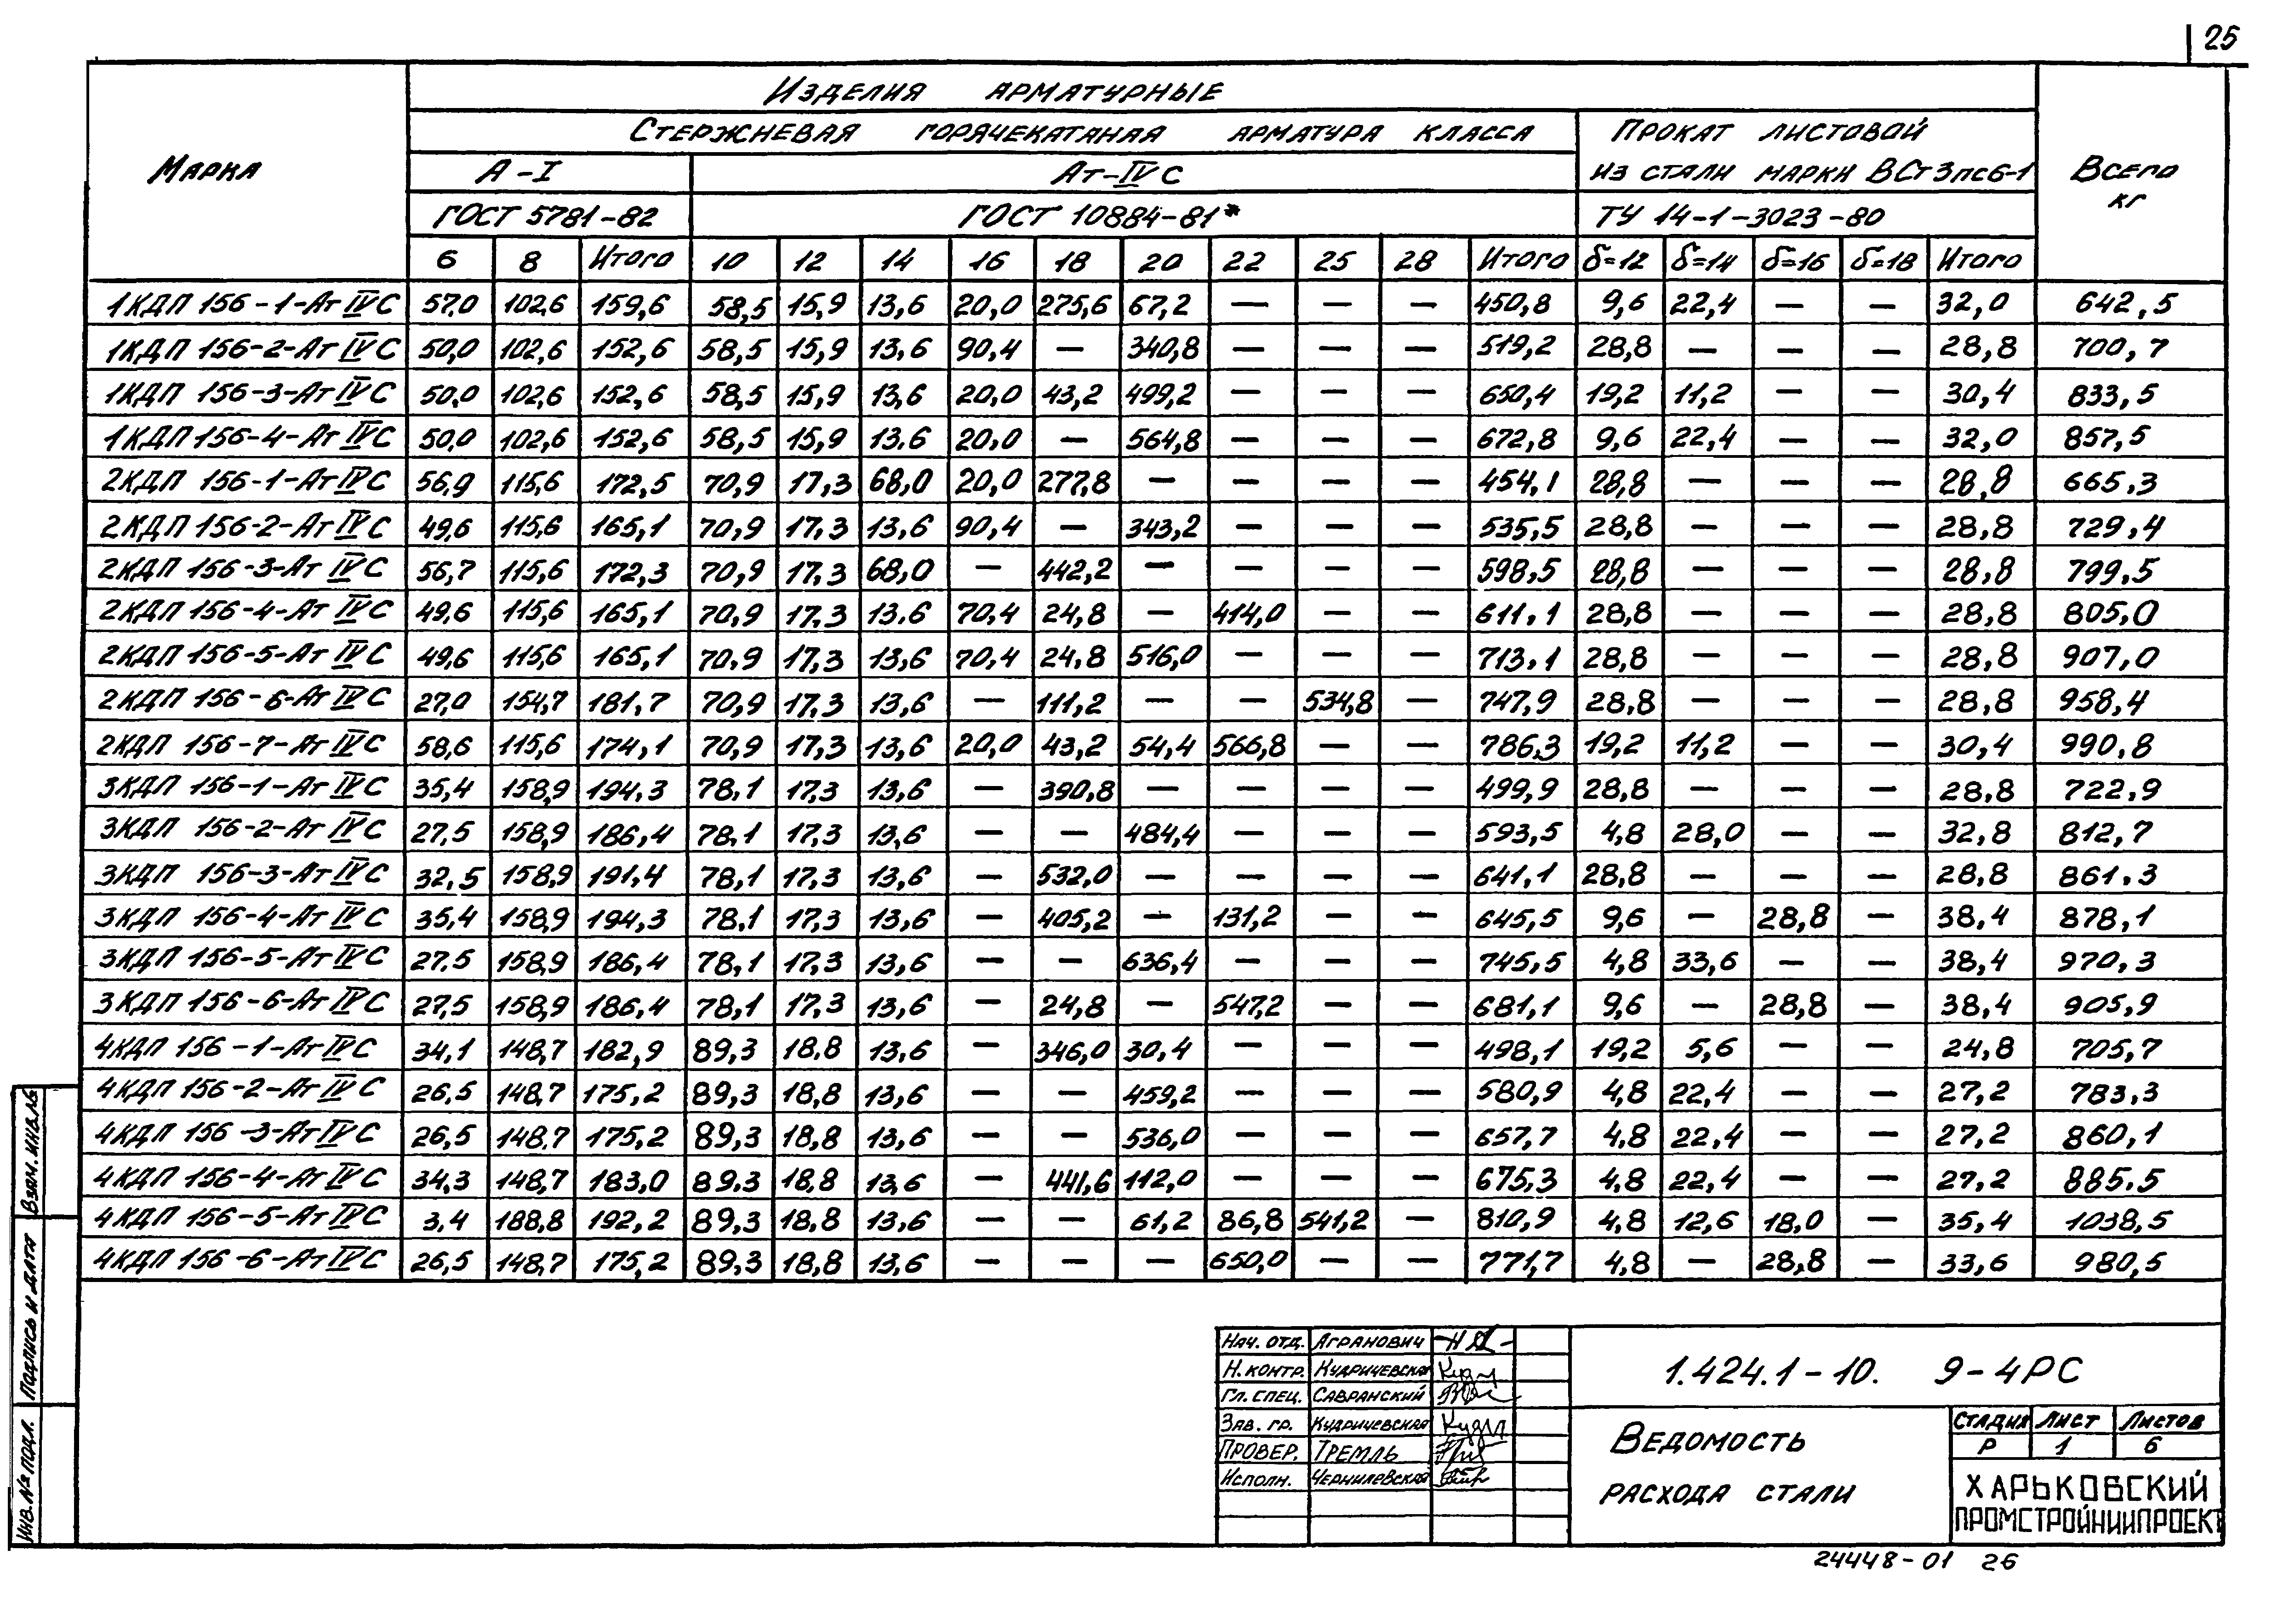 25
Изделия арматурные
Стержневая горячекатаная арматура класса
Прокат листовой
из стали марки ВСт3пс6-1
Марка
А-I
Ат-IVС
Всего
кг
ГОСТ 5781-82
ГОСТ 10884-81*
ТУ 14-1-3023-80
6 8 Итого 10 12 14 16 18 20 22 25 28 Итого δ=12 δ=14 δ=16 δ=18 Итого
1КДП 156-1-АтIVС 57,0 102,6 159,6 58,5 15,9 13,6 20,0 275,6 67,2 — — — 450,8 9,6 22,4 — — 32,0 642,5
1КДП 156-2-АтIVС 50,0 102,6 152,6 58,5 15,9 13,6 90,4 — 340,8 — — — 519,2 28,8 — — — 28,8 700,7
1КДП 156-3-АтIVС 50,0 102,6 152,6 58,5 15,9 13,6 20,0 43,2 499,2 — — — 650,4 19,2 11,2 — — 30,4 833,5
1КДП 156-4-АтIVС 50,0 102,6 152,6 58,5 15,9 13,6 20,0 — 564,8 — — — 672,8 9,6 22,4 — — 32,0 857,5
2КДП 156-1-АтIVС 56,9 115,6 172,5 70,9 17,3 68,0 20,0 277,8 — — — — 454,1 28,8 — — — 28,8 665,3
2КДП 156-2-АтIVС 49,6 115,6 165,1 70,9 17,3 13,6 90,4 — 343,2 — — — 535,5 28,8 — — — 28,8 729,4
2КДП 156-3-АтIVС 56,7 115,6 172,3 70,9 17,3 68,0 — 442,2 — — — — 598,5 28,8 — — — 28,8 799,5
2КДП 156-4-АтIVС 49,6 115,6 165,1 70,9 17,3 13,6 70,4 24,8 — 414,0 — — 611,1 28,8 — — — 28,8 805,0
2КДП 156-5-АтIVС 49,6 115,6 165,1 70,9 17,3 13,6 70,4 24,8 516,0 — — — 713,1 28,8 — — — 28,8 907,0
2КДП 156-6-АтIVС 27,0 154,7 181,7 70,9 17,3 13,6 — 111,2 — — 534,8 — 747,9 28,8 — — — 28,8 958,4
2КДП 156-7-АтIVС 58,6 115,6 174,1 70,9 17,3 13,6 20,0 43,2 54,4 566,8 — — 786,3 19,2 11,2 — — 30,4 990,8
3КДП 156-1-АтIVС 35,4 158,9 194,3 78,1 17,3 13,6 — 390,8 — — — — 499,9 28,8 — — — 28,8 722,9
3КДП 156-2-АтIVС 27,5 158,9 186,4 78,1 17,3 13,6 — — 484,4 — — — 593,5 4,8 28,0 — — 32,8 812,7
3КДП 156-3-АтIVС 32,5 158,9 191,4 78,1 17,3 13,6 — 532,0 — — — — 641,1 28,8 — — — 28,8 861,3
3КДП 156-4-АтIVС 35,4 158,9 194,3 78,1 17,3 13,6 — 405,2 — 131,2 — — 645,5 9,6 — 28,8 — 38,4 878,1
3КДП 156-5-АтIVС 27,5 158,9 186,4 78,1 17,3 13,6 — — 636,4 — — — 745,5 4,8 33,6 — — 38,4 970,3
3КДП 156-6-АтIVС 27,5 158,9 186,4 78,1 17,3 13,6 — 24,8 — 547,2 — — 681,1 9,6 — 28,8 — 38,4 905,9
4КДП 156-1-АтIVС 34,1 148,7 182,9 89,3 18,8 13,6 — 346,0 30,4 — — — 498,1 19,2 5,6 — — 24,8 705,7
4КДП 156-2-АтIVС 26,5 148,7 175,2 89,3 18,8 13,6 — — 459,2 — — — 580,9 4,8 22,4 — — 27,2 783,3
4КДП 156-3-АтIVС 26,5 148,7 175,2 89,3 18,8 13,6 — — 536,0 — — — 657,7 4,8 22,4 — — 27,2 860,1
4КДП 156-4-АтIVС 34,3 148,7 183,0 89,3 18,8 13,6 — 441,6 112,0 — — — 675,3 4,8 22,4 — — 27,2 885,5
4КДП 156-5-АтIVС 3,4 188,8 192,2 89,3 18,8 13,6 — — 61,2 86,8 541,2 — 810,9 4,8 12,6 18,0 — 35,4 1038,5
4КДП 156-6-АтIVС 26,5 148,7 175,2 89,3 18,8 13,6 — — — 650,0 — — 771,7 4,8 — 28,8 — 33,6 980,5
Взам. инв.№
Подпись и дата
Инв.№ подл.
Нач. отд. Агранович
Н. контр. Кудричевская
Гл. спец. Савранский
Зав. гр. Кудричевская
Провер. Тремль
Исполн. Чернилевская
1.424.1-10. 9-4РС
Ведомость
расхода стали
Стадия Лист Листов
Р 1 6
Харьковский
Промстройниипроект
24448-01 26